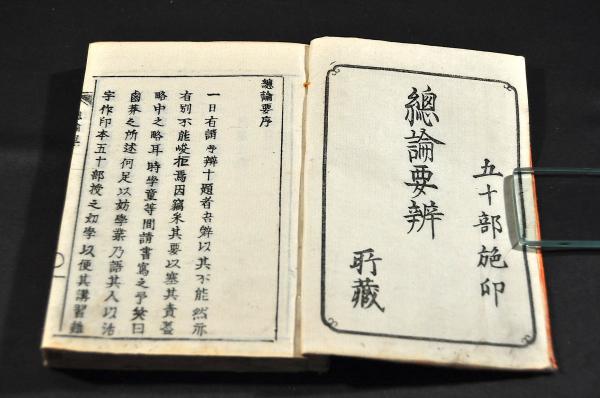 五十部施印
總論要辨
藏
總論要序
一日有請予辨十題者辭以其不能然亦
有別不能峻拒焉因竊采其要以塞其責蓋
略中之略耳時學童等間請書寫之予笑曰
鹵莽之所述何足以妨學業乃語其人以活
字作印本五十部授之初學以便其講習雖